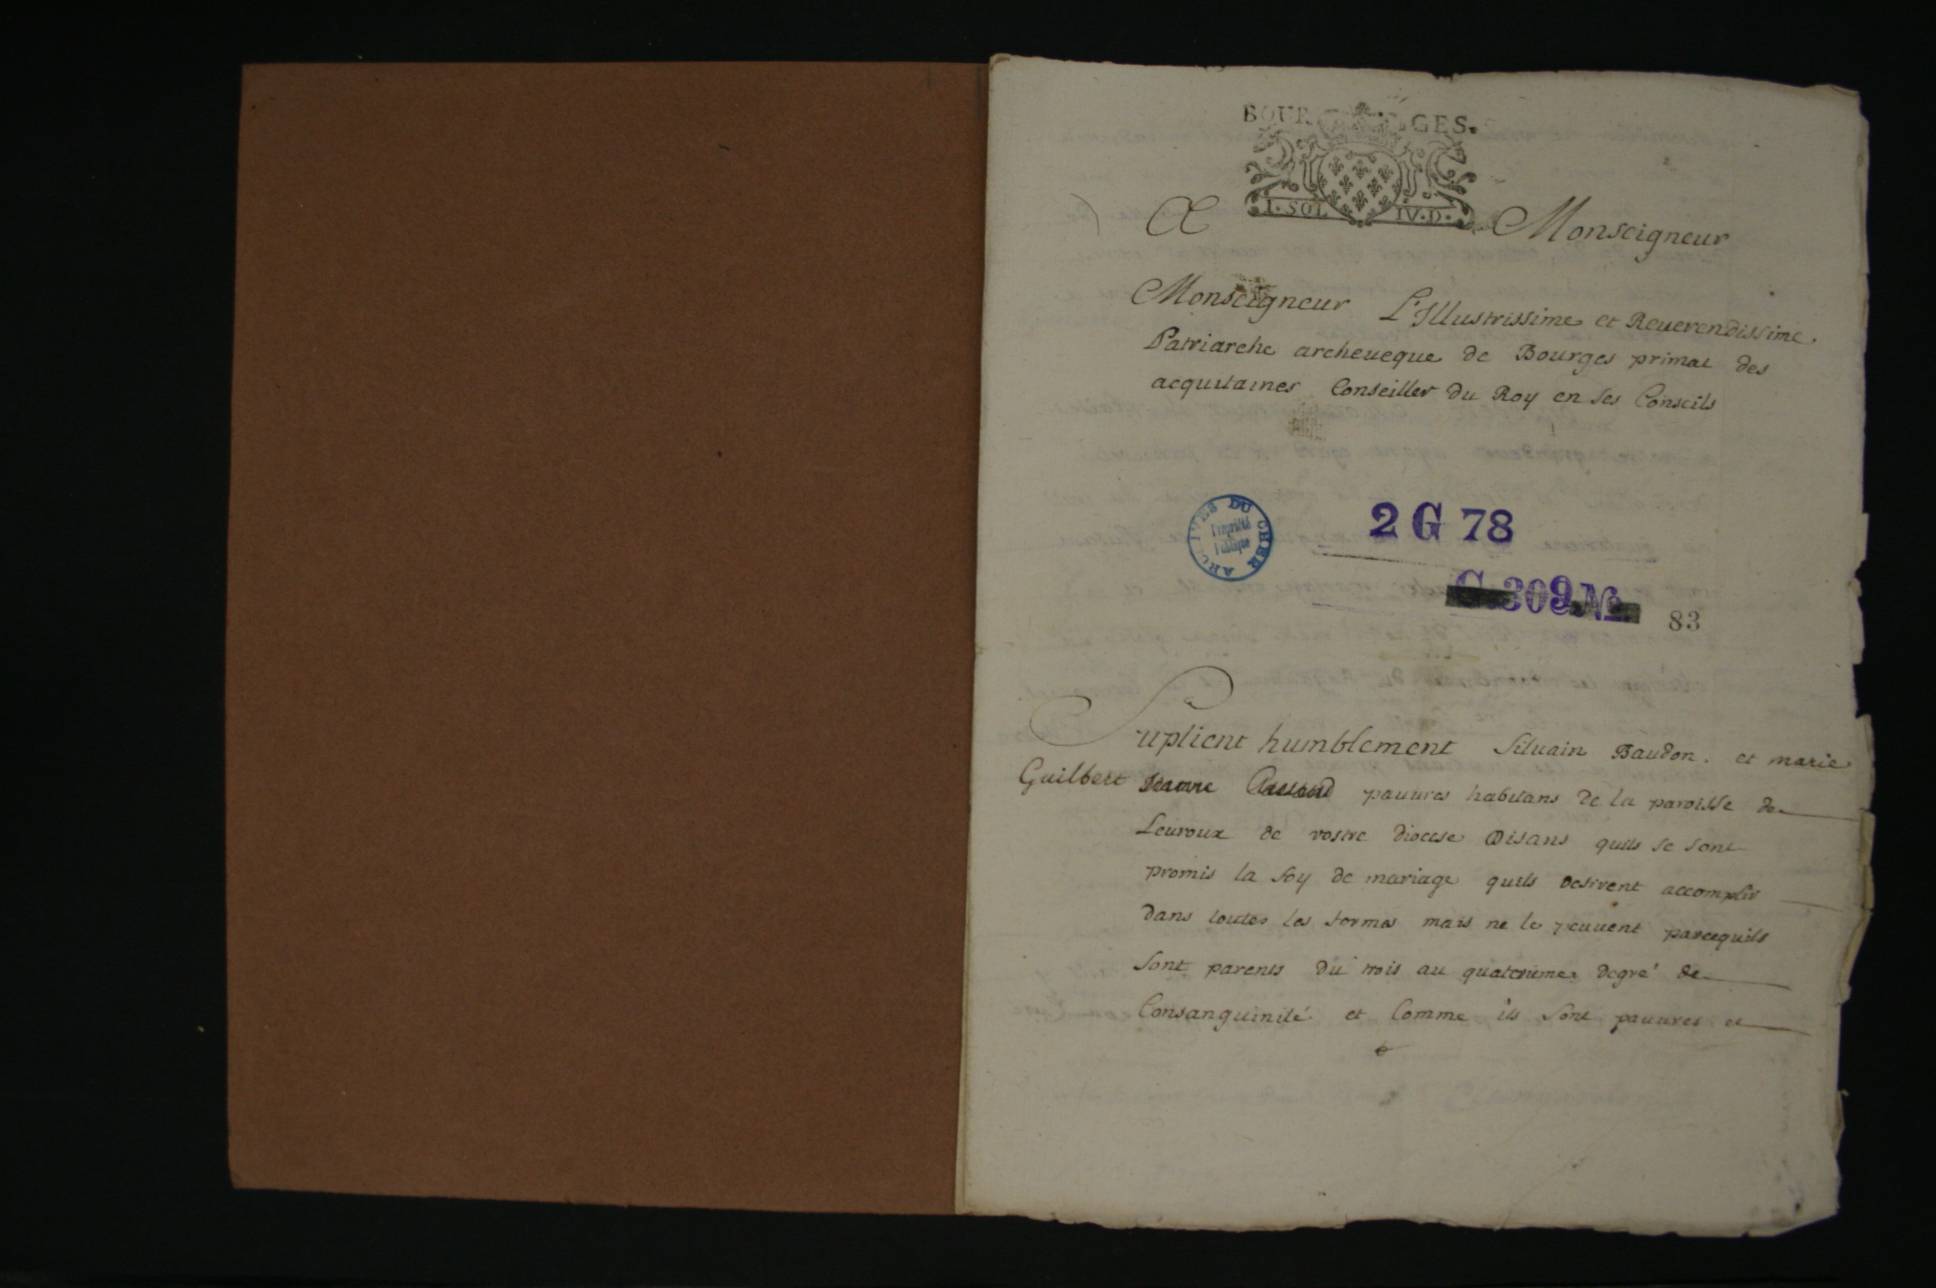 BOURGES.
I. SOL IV. D.
A Monseigneur
Monseigneur L'Illustrissime et Reuerendissime.
Patriarche archeueque de Bourges primat des
acquitaines Conseiller du Roy en ses Conseils
ARCHIVES DU CHER
Propriété
Publique
2 G 78
G 309 No
83
Suplient humblement Siluain Baudon. et marie
Guilbert Jeanne pauures habitans de la paroisse de
Leuroux de vostre diocese Disans quils se sont
promis la foy de mariage quils desirent accomplir
dans toutes les formes mais ne le peuuent parcequils
sont parents du trois au quatriéme degré de
Consanguinité et Comme ils sont pauures et